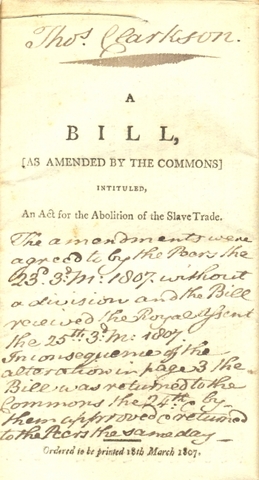 Thos. Clarkson.
A
BILL,
[AS AMENDED BY THE COMMONS]
INTITULED,
An Act for the Abolition of the Slave Trade.
The amendments were
agreed to by the Peers the
23d. 3d. M: 1807. without
a division and the Bill
received the Royal Assent
the 25th 3d. M: 1807
In consequence of the
alteration in page 3 the
Bill was returned to the
Commons the 24th & by
them approved & returned
to the Peers the same day —
Ordered to be printed 18th March 1807.